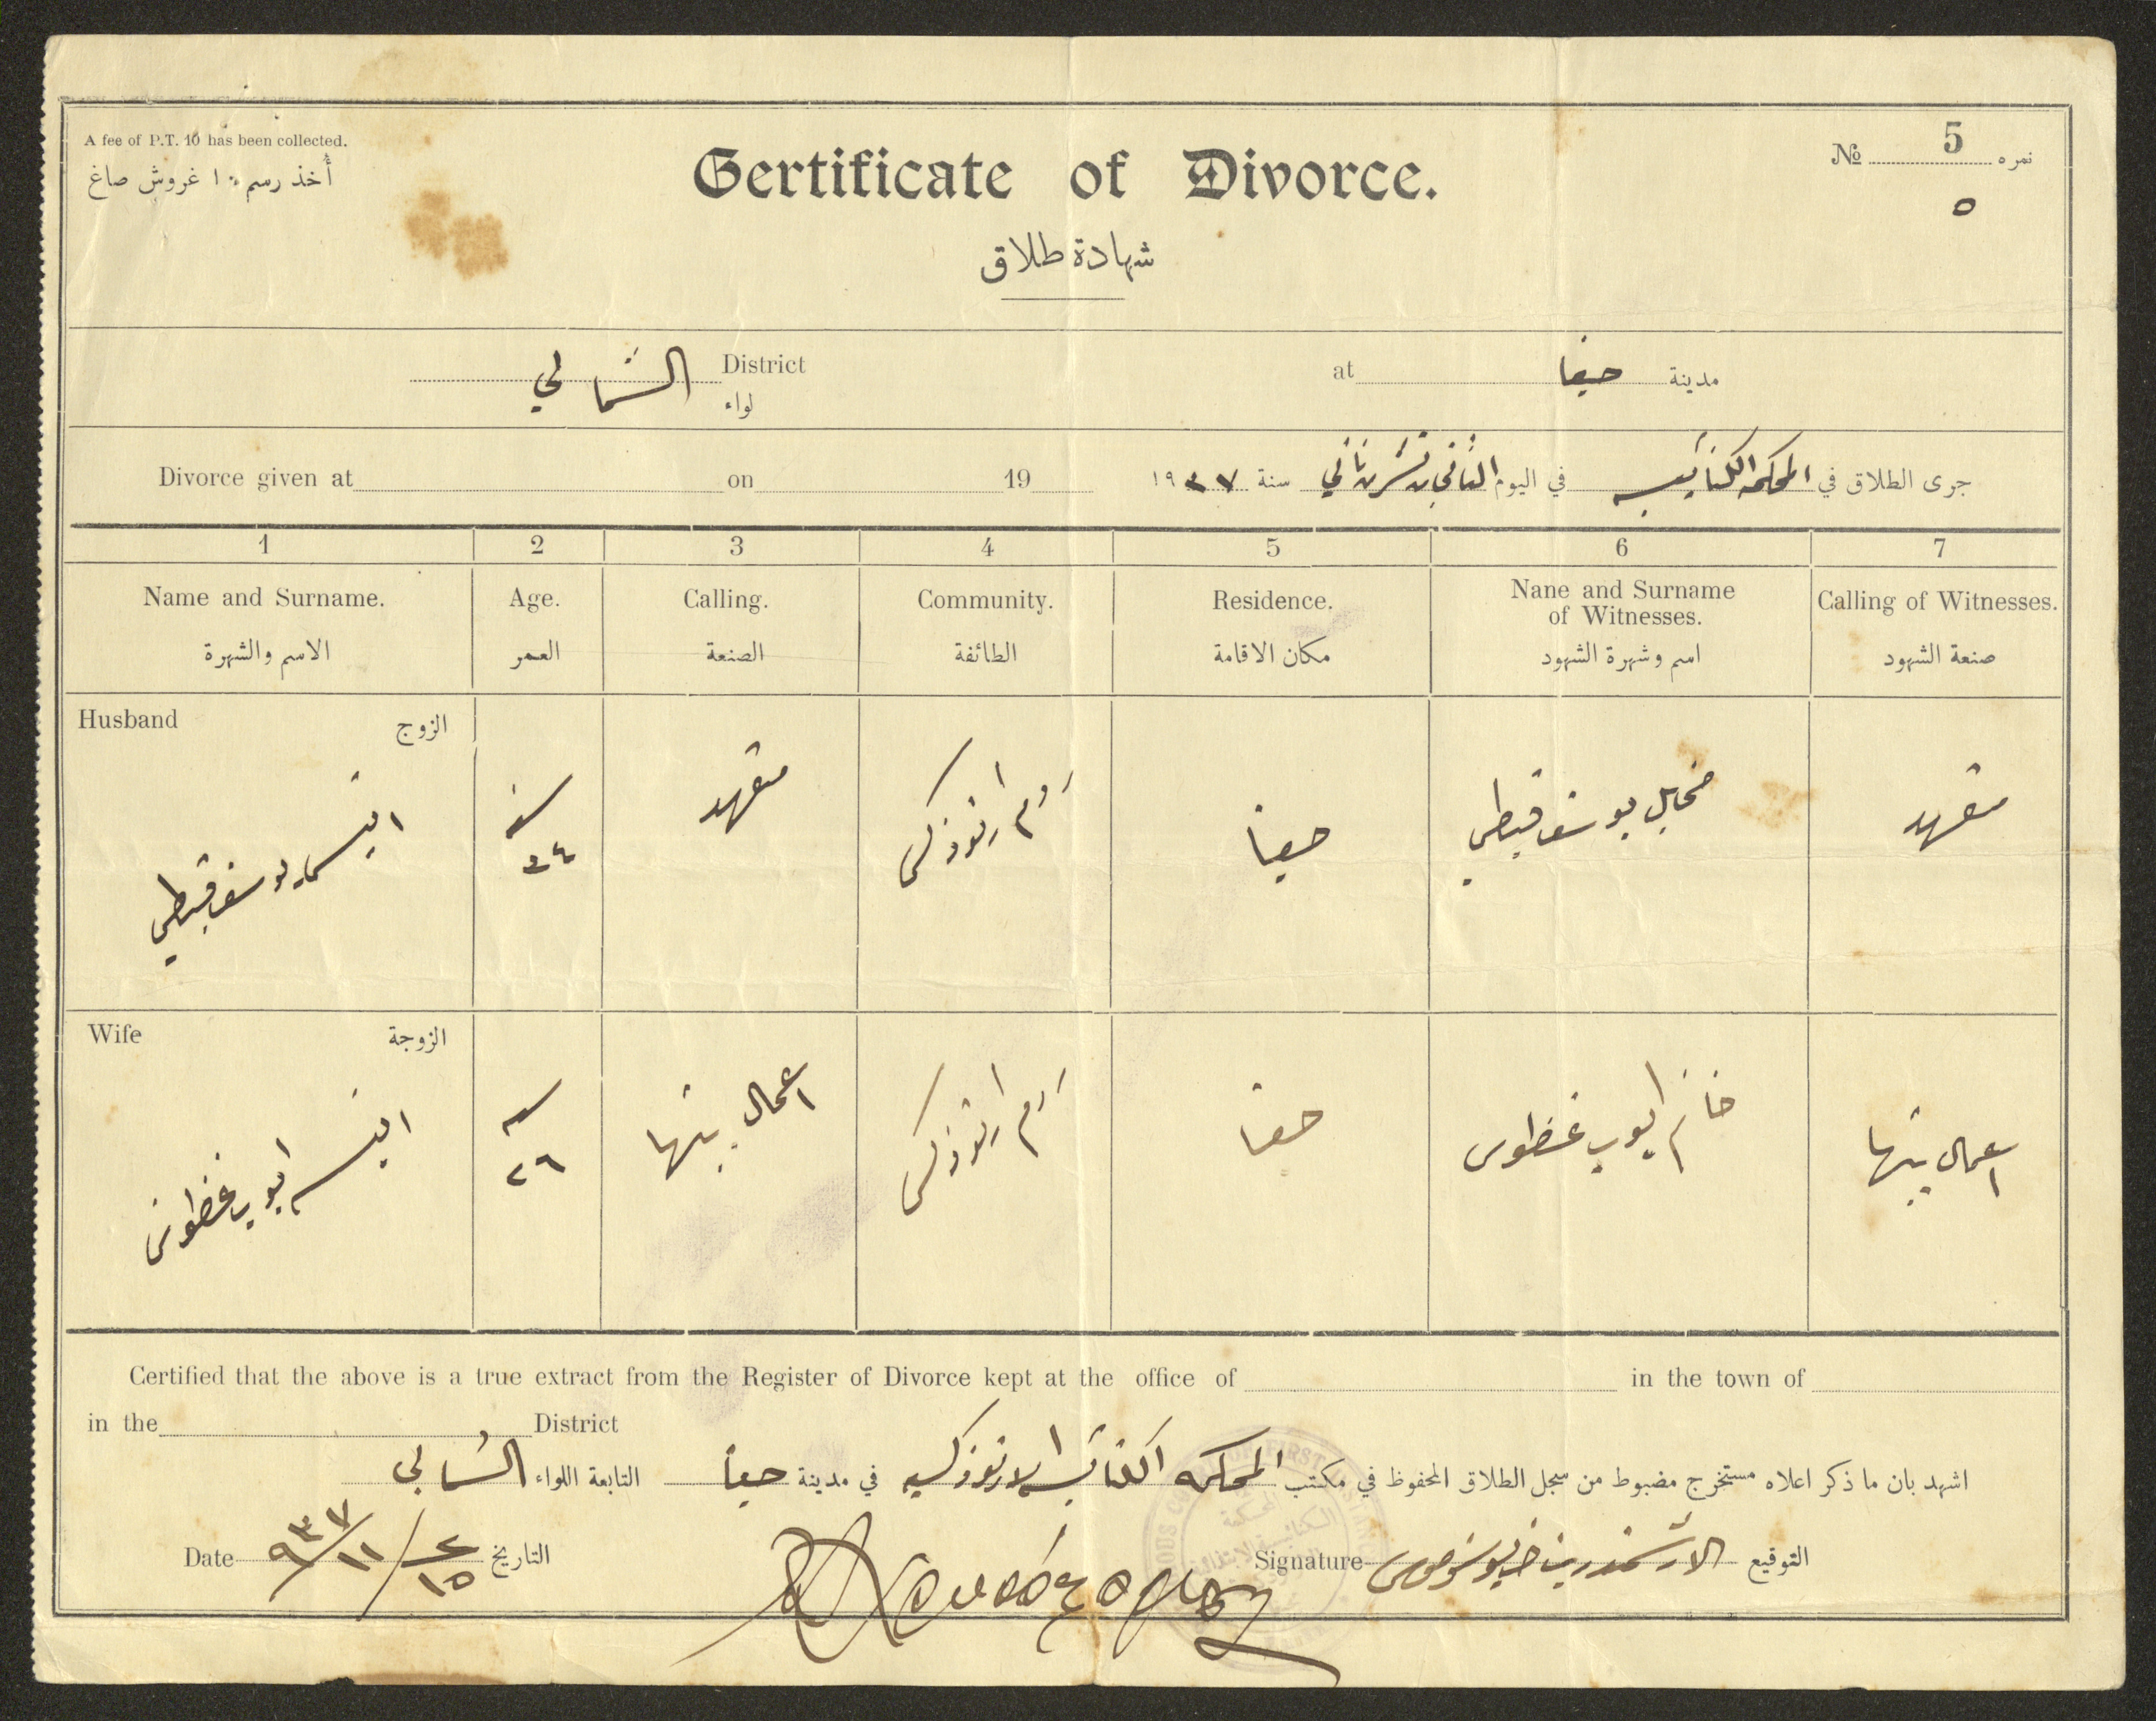 A fee of P.T. 10 has been collected.
أُخذ رسم ١٠ غروش صاغ
Certificate of Divorce.
شهادة طلاق
№ 5 نمره
٥
District الشمالي
لواء
at حيفا مدينة
Divorce given at on 19
جرى الطلاق في المحكمة الكنائسيه في اليوم الثاني تشرين ثاني سنة ١٩٣٧
1 2 3 4 5 6 7
Name and Surname. Age. Calling. Community. Residence. Nane and Surname of Witnesses. Calling of Witnesses.
الاسم والشهرة العمر الصنعة الطائفة مكان الاقامة اسم وشهرة الشهود صنعة الشهود
Husband الزوج
يوسف قبطي سنة ٣٤ متعهد روم ارثوذكس حيفا يوسف قبطي متعهد
Wife الزوجة
انيسه ايوب غطوس سنه ٢٦ اعمال بيتها روم ارثوذكس حيفا ايوب غطوس اعمال بيتها
Certified that the above is a true extract from the Register of Divorce kept at the office of in the town of
in the District
اشهد بان ما ذكر اعلاه مستخرج مضبوط من سجل الطلاق المحفوظ في مكتب المحكمه الكنائسيه الارثوذكسيه في مدينة حيفا التابعة اللواء الشمالي
Date ٩٣٧/١١/ ١٥ التاريخ
Signature الارشمندريت التوقيع